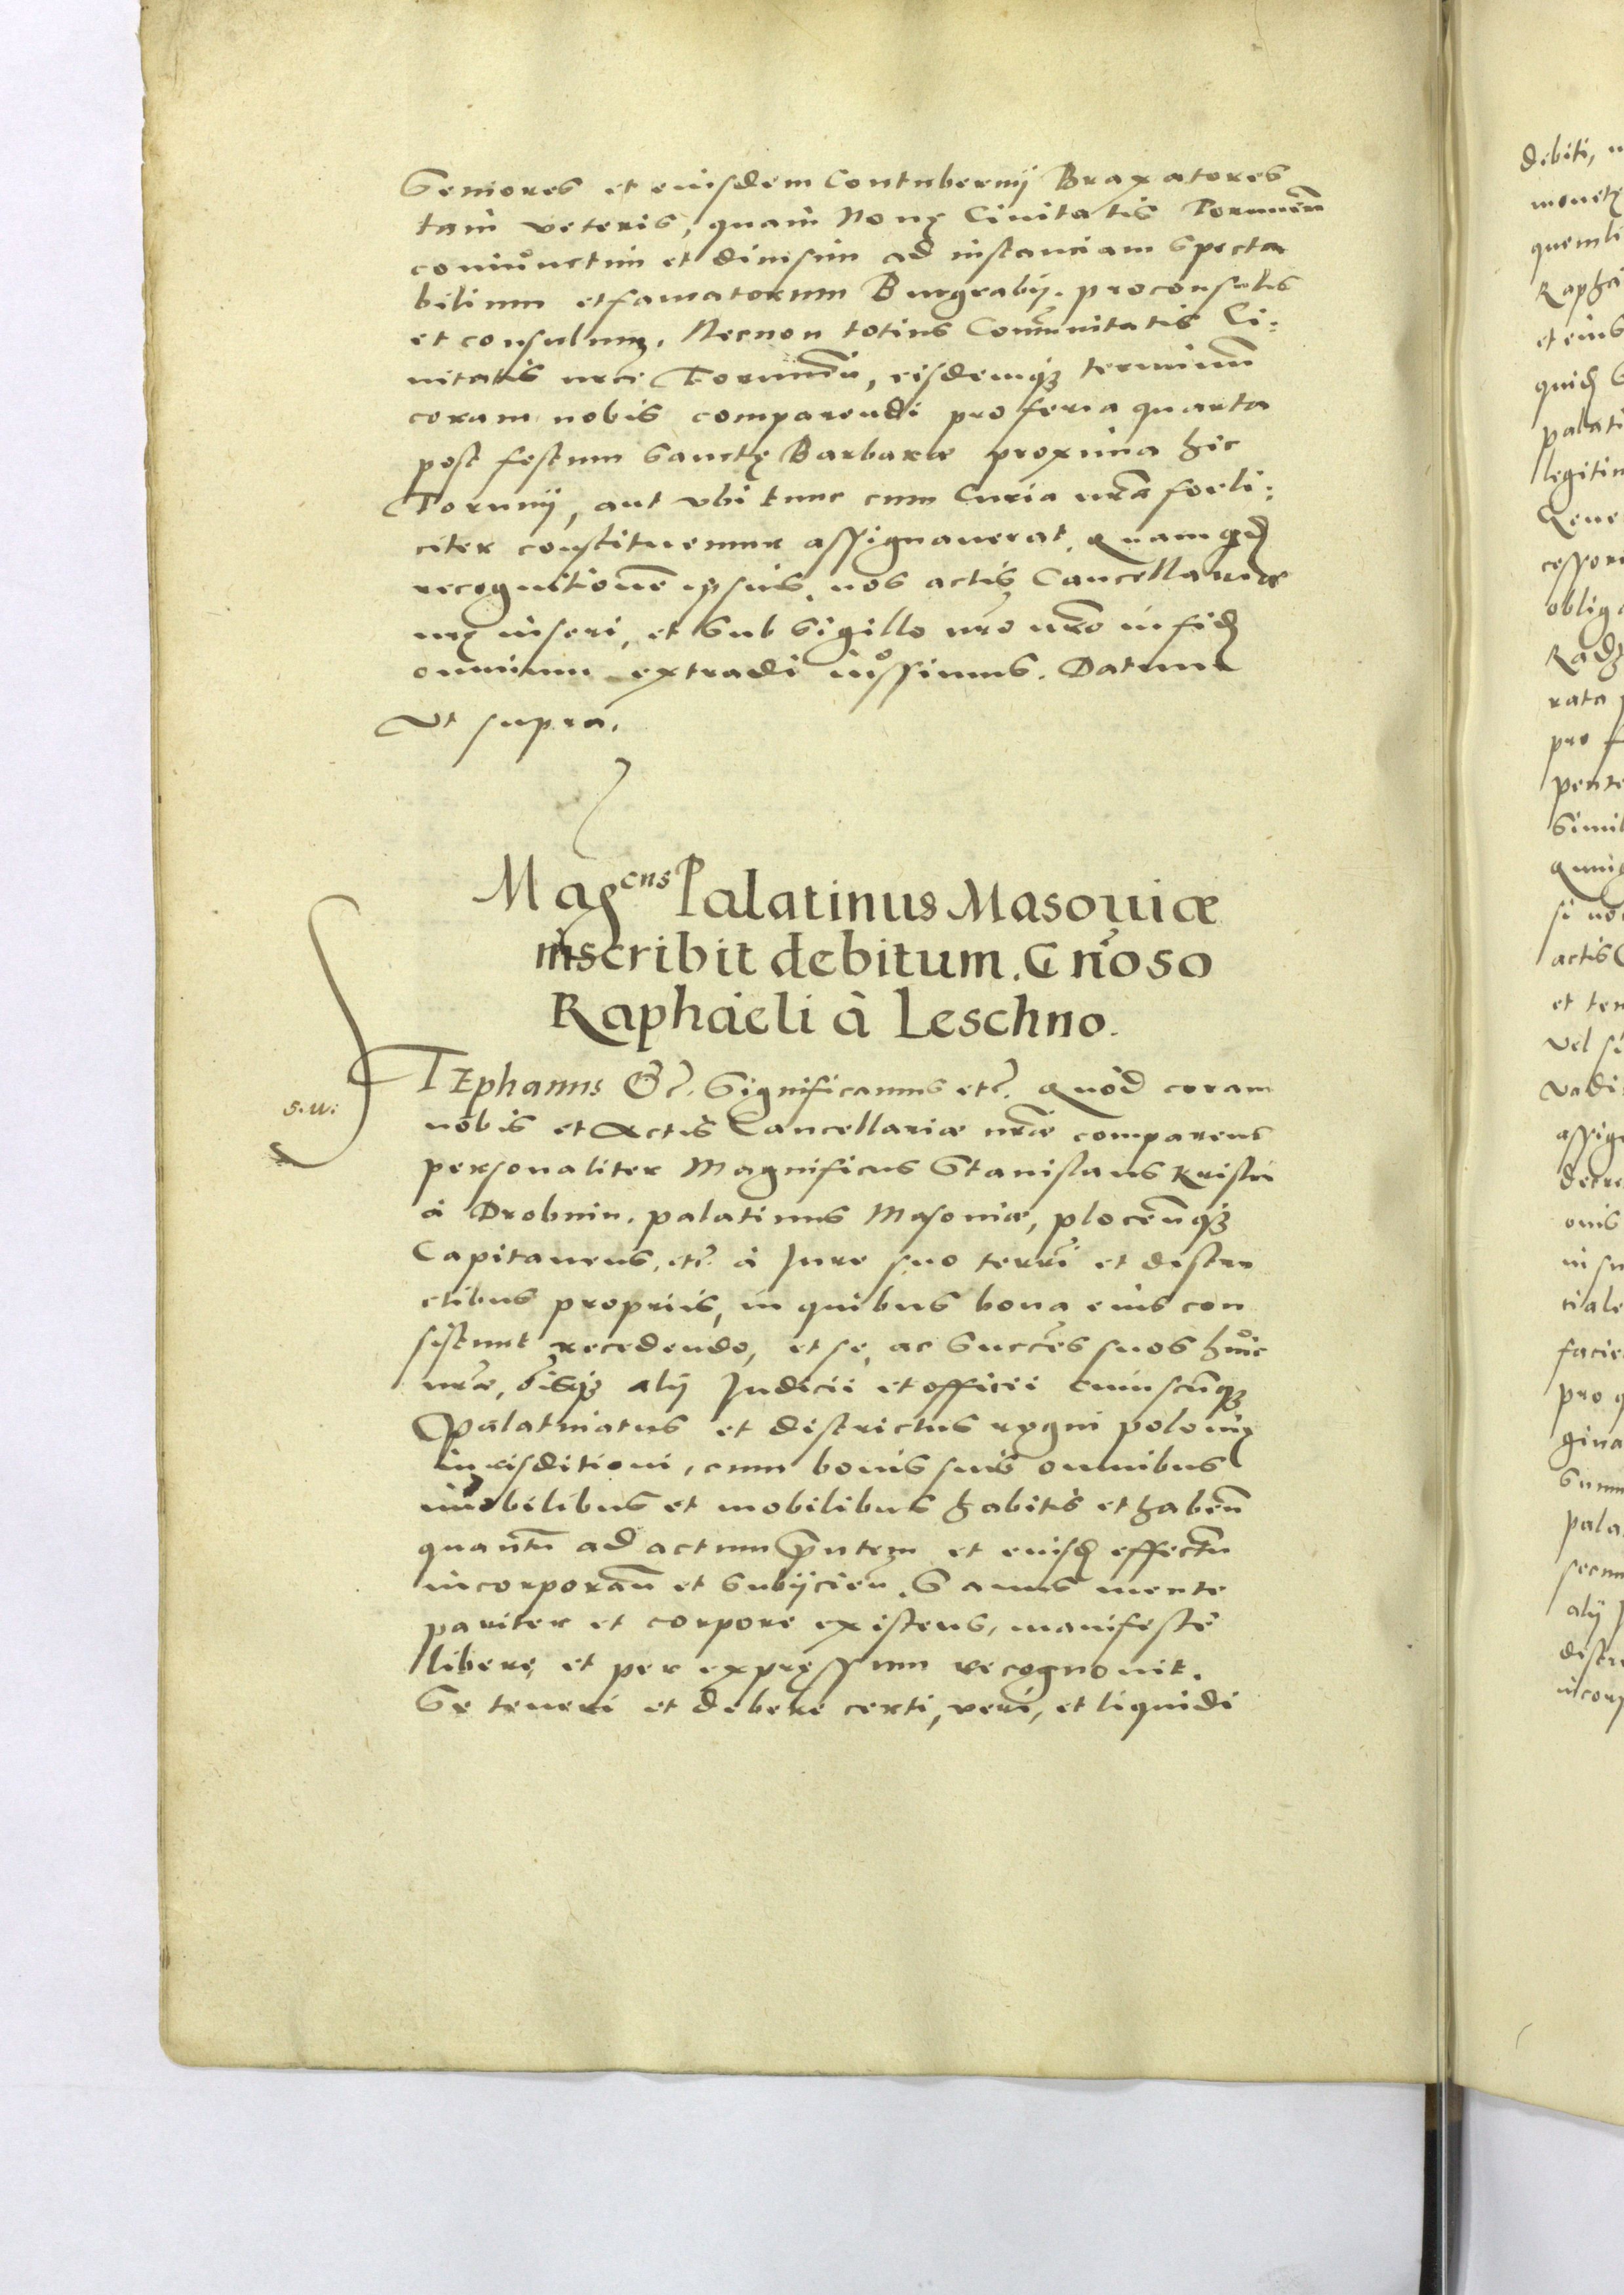 Seniores et eiusdem Contubernij Braxatores
tam veteris, quam Nouę Ciuitatis Torunen̄
coniunctim et diuisim ad instanciam specta
bilium et famatorum Burgrabij. proconsulis
et consulum. Necnon totius Com̄unitatis Ci:
uitatis nrae Torunen̄, eisdemq₃ terminum
coram nobis comparendi pro feria quarta
post festum Sanctę Barbarae proxima hic
Torunij, aut vbi tunc cum Curia nrā foeli:
citer constituemur assignauerat. Quam qd
recognitionē ipsius, nos actis Cancellariae
nrę inseri, et sub Sigillo nro in fid
omnium extradi iussimus. Datum
Vt supra.
Mag^cus Palatinus Masouiæ
inscribit debitum. Gn̄oso
Raphaeli à Leschno.
STEphanus &c. Significamus etc. Quòd coram
nobis et Actis Cancellariæ nrāe comparens
personaliter Magnificus Stanislaus Kriski
à Drobnin. palatinus Masouiæ, plocen̄q₃
Capitaneus, etc. à Jure suo terrī et distri
ctibus propriis, in quibus bona eius con
sistunt recedendo, et se, ac Succ̄es suos huic
nrae, cuiusq₃ alij Judicii et officii cuiuscūq₃
Palatinatus et districtus regni polonię
iurisditioni, cum bonis suis omnibus
im̄obilibus et mobilibus habitis et haben̄
quantū ad actum pn̄tem et eiusd effectū
incorporan̄ et subijcien̄. Sanus mente
pariter et corpore existens, manifestè
liberę et per expressum recognouit.
Se teneri et debere certi, veri, et liquidi
S. W:
debiti,
Rapha
et eius
quid
palati
legitim
cessori
oblig
Radz
rata
pro f
pente
Simil
actis
et ten
vel si
vadi
assig
decre
onis
in su
tiale
facie
pro q
gina
Summ
pala
secun
alij
distr
incorp